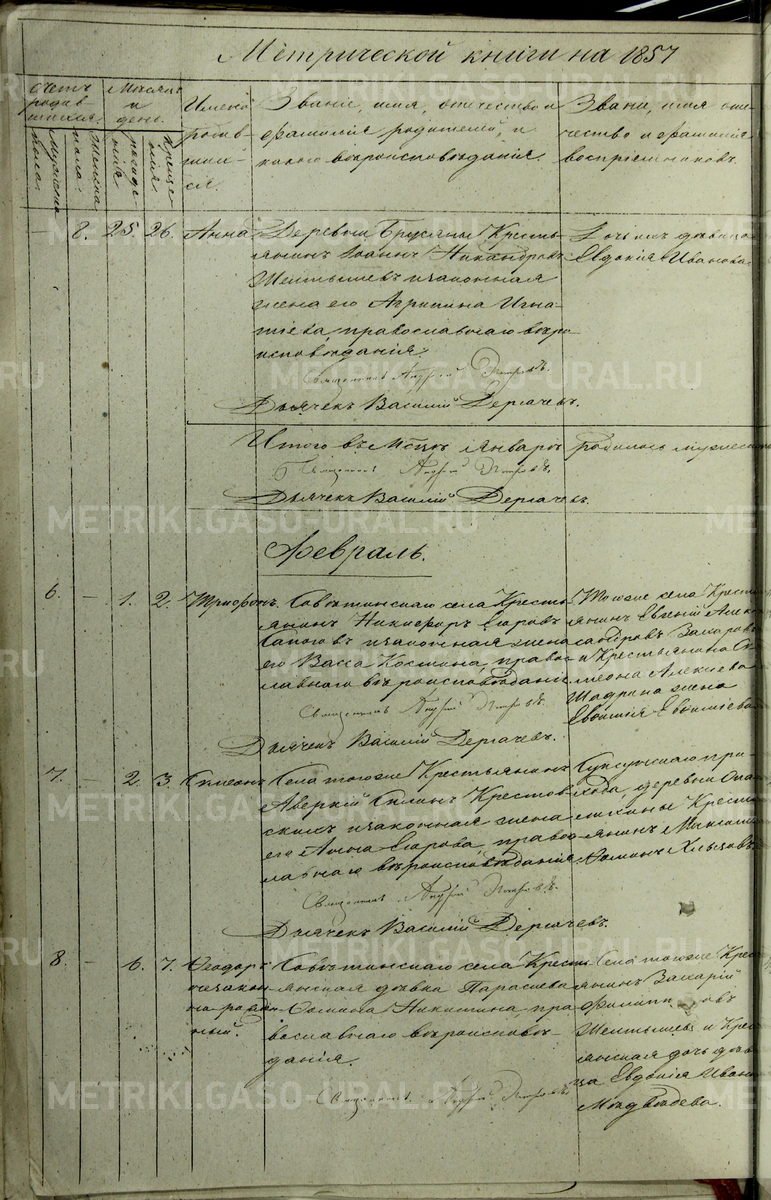 Метрической книги на 1857
Счетъ родившихся.
Мужеска пола.
Женска пола.
Месяцъ и день.
рожденія
крещенія
Имена родившихся.
Званіе, имя, отечество и фамилія родителей, и какого вероисповеданія.
Званіе, имя отечество и фамилія воспріемниковъ.
— 8. 25. 26. Анна
Деревни Брусяны Кресть-
янинъ Іоаннъ Никандровъ
Желтышевъ и законная
жена его Агрипина Игна-
тіева, православнаго веро-
исповеданія.
Священникъ Андрей Петровъ.
Дьячекъ Василій Дергачевъ.
Дочь ихъ девица
Евдокія Иванова
Итого въ месяце Январе родилось мужеска
Священникъ Андрей Петровъ.
Дьячекъ Василій Дергачевъ.
Февраль.
6. — 1. 2. Трифонъ.
села Кресть-
янинъ Никифоръ Егоровъ
Сапоговъ и законная жена
его Васса Костина, правос-
лавнаго вероисповеданія
Священникъ Андрей Петровъ.
Дьячекъ Василій Дергачевъ.
Тогоже села Кресть
янинъ Евгеній Алек
сандровъ Захаровъ
и Крестьянина Си
меона Алексеева
Шадрина жена
Евфимія Евфиміева
7. — 2. 3. Симеонъ
Села тогоже Крестьянинъ
Аверкій
и законная жена
его Анна Егорова, правос-
лавнаго вероисповеданія
Священникъ Андрей Петровъ.
Дьячекъ Василій Дергачевъ.
Суксунскаго при-
хода, деревни
Кресть
янинъ
8. — 6. 7. Феодоръ
незакон-
норожден-
ный.
села Кресть-
янская девка Параскева
Никитина, пра-
вославнаго вероиспове-
данія.
Священникъ Андрей Петровъ
Села тогоже Крес
янинъ Захарій
Желтышевъ и Крес
янская дочь деви-
ца Евдокія Ивано
Медведева.
METRIKI.GASO-URAL.RU